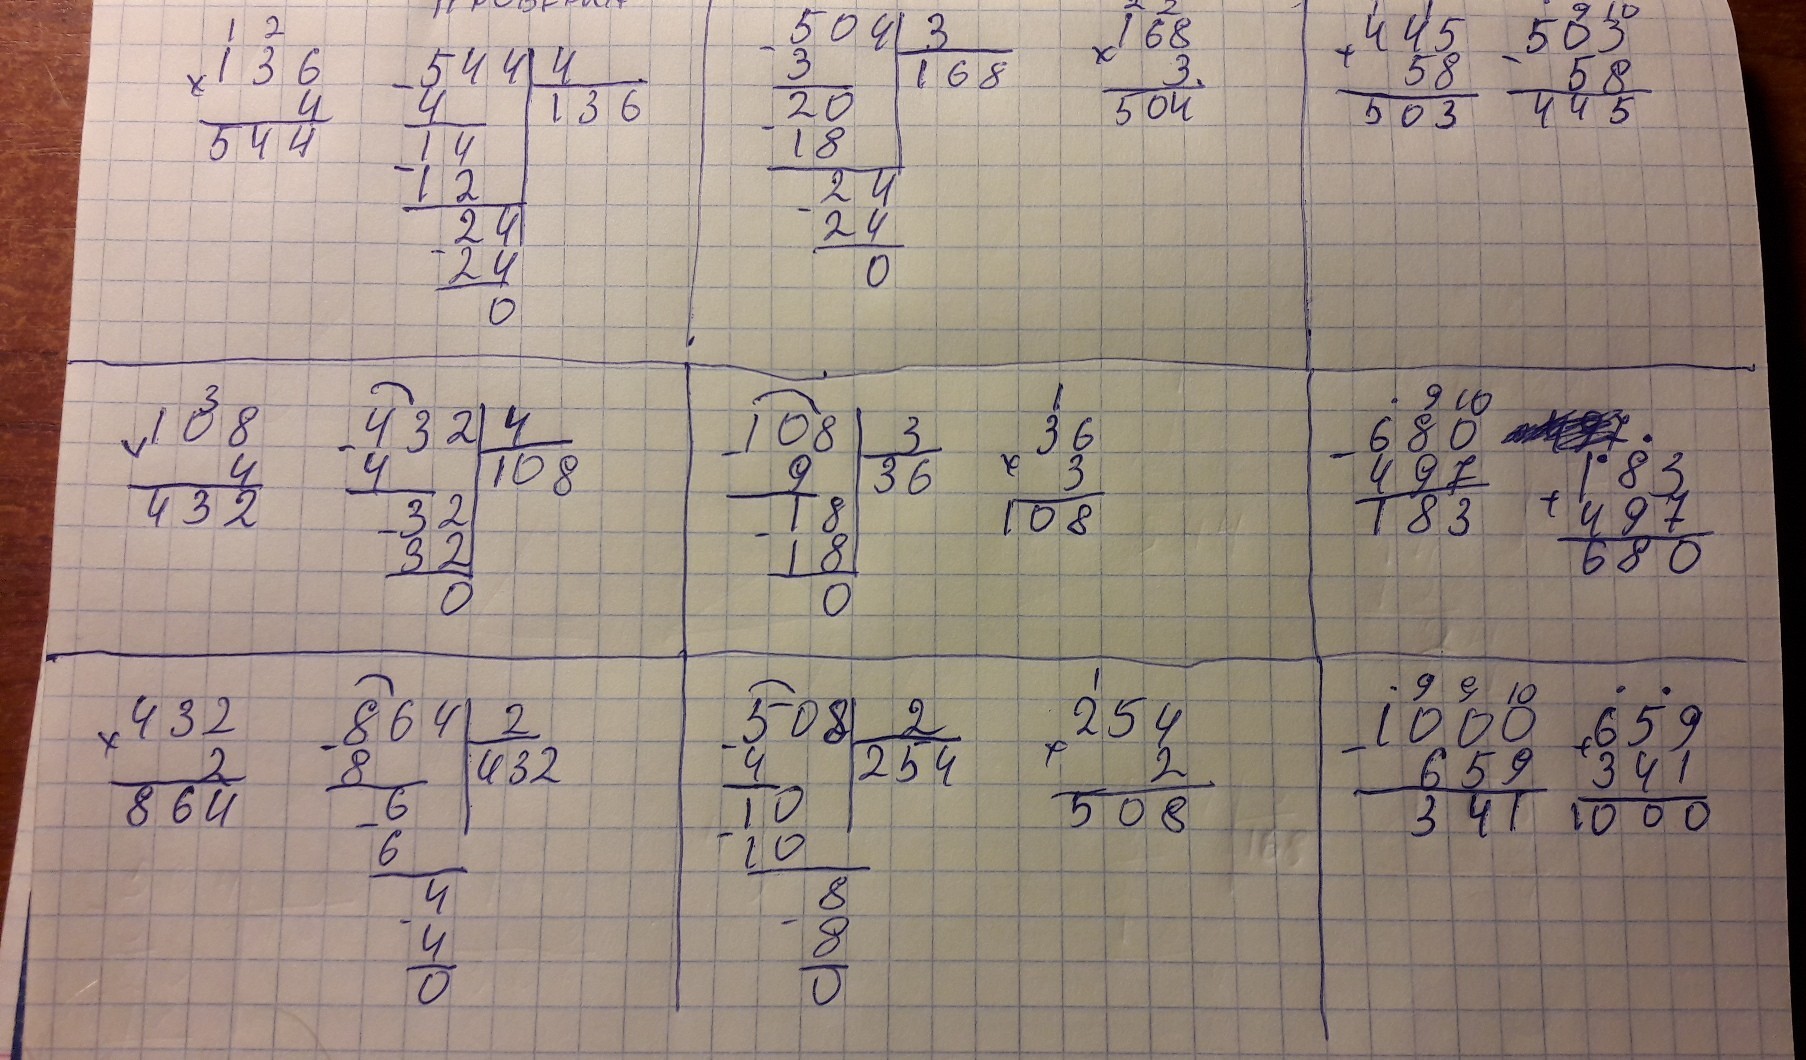 1 2
× 136
4
544
- 544 | 4
4 136
14
- 12
24
- 24
0
- 504 | 3
3 168
20
- 18
24
- 24
0
2 2
× 168
3
504
1 1
+ 445
58
503
. 9 10
- 503
58
445
3
× 108
4
432
- 432 | 4
4 108
- 32
32
0
- 108 | 3
9 36
- 18
18
0
1
36
× 3
108
. 9 10
- 680
497
183
183
+ 497
680
× 432
2
864
- 864 | 2
8 432
- 6
6
4
- 4
0
- 508 | 2
4 254
10
- 10
8
- 8
0
1
× 254
2
508
. 9 9 10
- 1000
659
341
. .
+ 659
341
1000